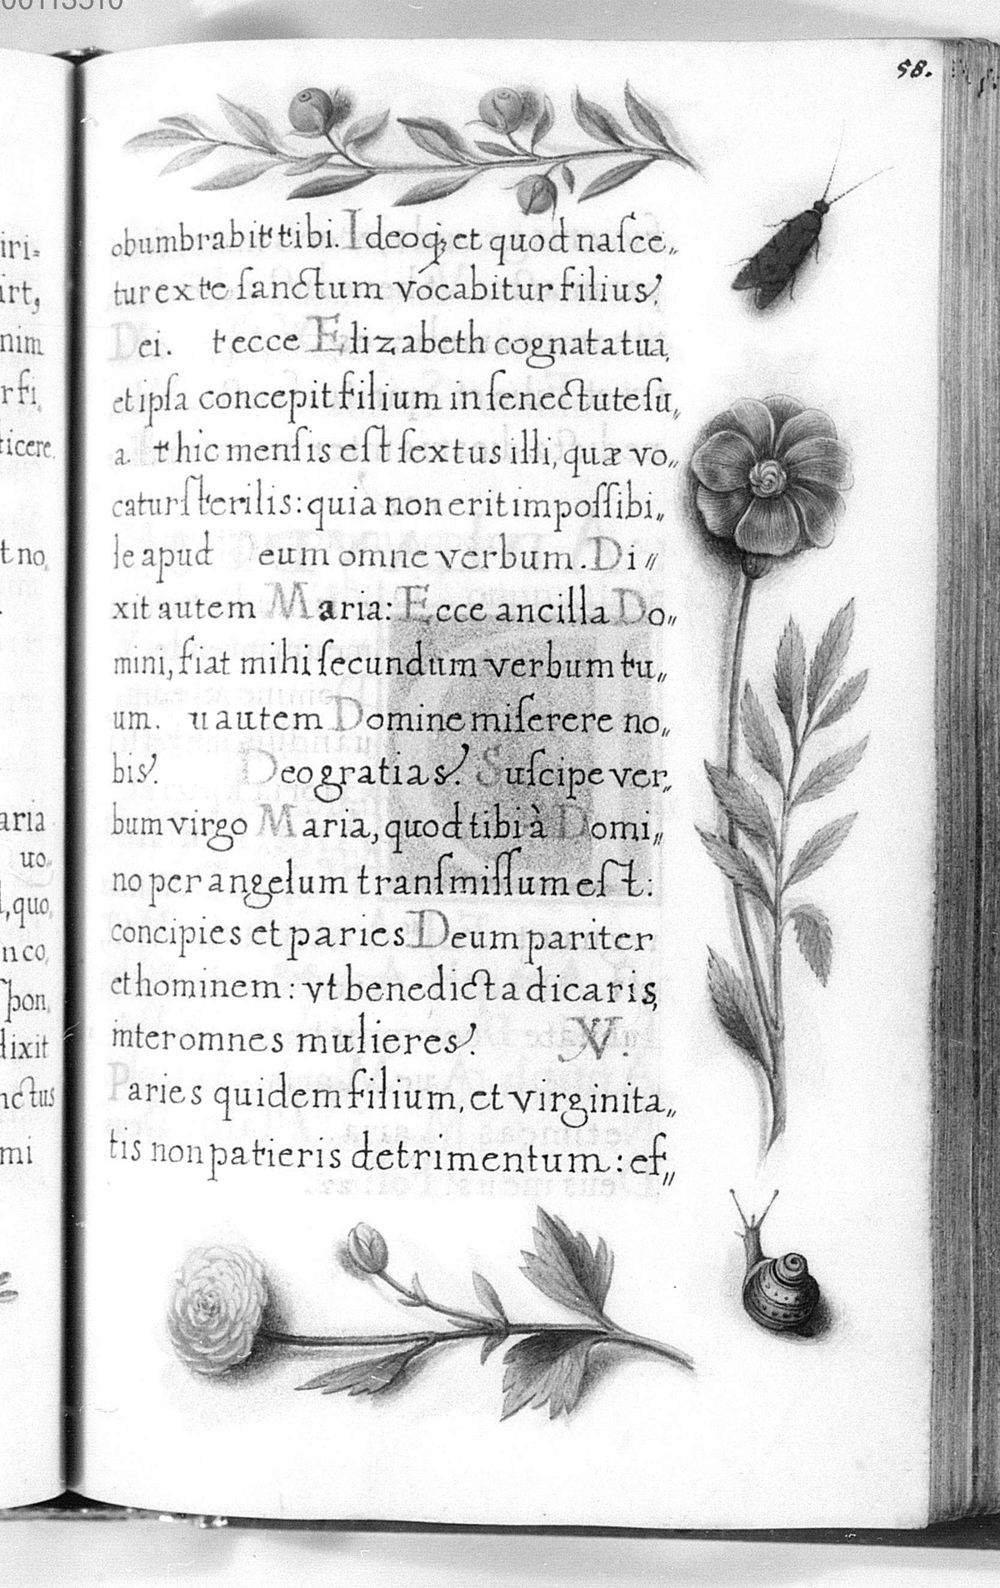 58.
obumbrabit tibi. Ideoq; et quod naſce„
tur ex te ſanctum vocabitur filius.
Dei. t ecce Elizabeth cognata tua,
et ipſa concepit filium in ſenectute ſu„
a. t hic menſis eſt ſextus illi, quæ vo„
catur ſterilis: quia non erit impoſſibi„
le apud eum omne verbum. Di„
xit autem Maria: Ecce ancilla Do„
mini, fiat mihi ſecundum verbum tu„
um. u autem Domine miſerere no„
bis. Deo gratias. Suſcipe ver„
bum virgo Maria, quod tibi à Domi„
no per angelum tranſmiſſum eſt:
concipies et paries Deum pariter
et hominem: vt benedicta dicaris,
inter omnes mulieres. V.
Paries quidem filium, et virginita„
tis non patieris detrimentum: ef„
iri=
irt,
nim
rfi,
ticere
t no,
aria
uo
l, quo,
n co,
ſpon,
dixit
nctus
mi